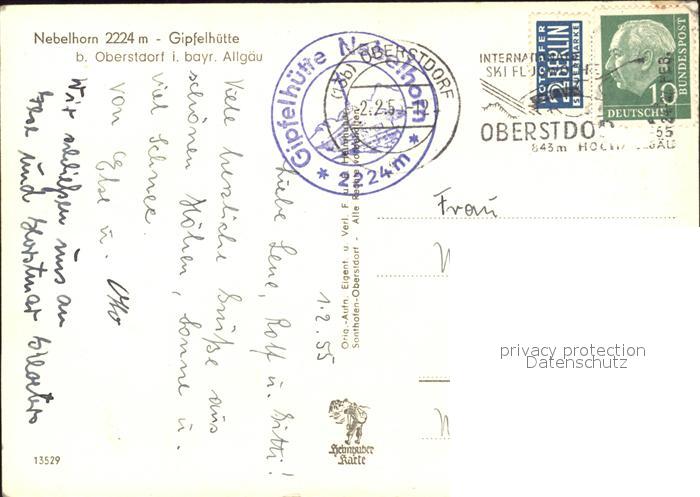 Nebelhorn 2224 m - Gipfelhütte
b. Oberstdorf i. bayr. Allgäu
Gipfelhütte Nebelhorn
* 2224 m *
(13b) OBERSTDORF
2.2.5
INTERNAT
SKIFLU
OBERSTDO
843m HOCH ALLGÄU
NOTOPFER
2 BERLIN
STEUERMARKE
DEUTSCHE BUNDESPOST
10
1.2.55
Liebe Lene, Rolf u. Gitti!
Viele herzliche Grüße aus
schönen Höhen, Sonne u.
viel Schnee.
von Else u. Otto
Wir schließen uns an
und
Frau
Orig.-Aufn. Eigent. u. Verl. F. u. A. Heimhuber
Sonthofen-Oberstdorf - Alle Rechte vorbehalten
Heimhuber
Karte
13529
privacy protection
Datenschutz